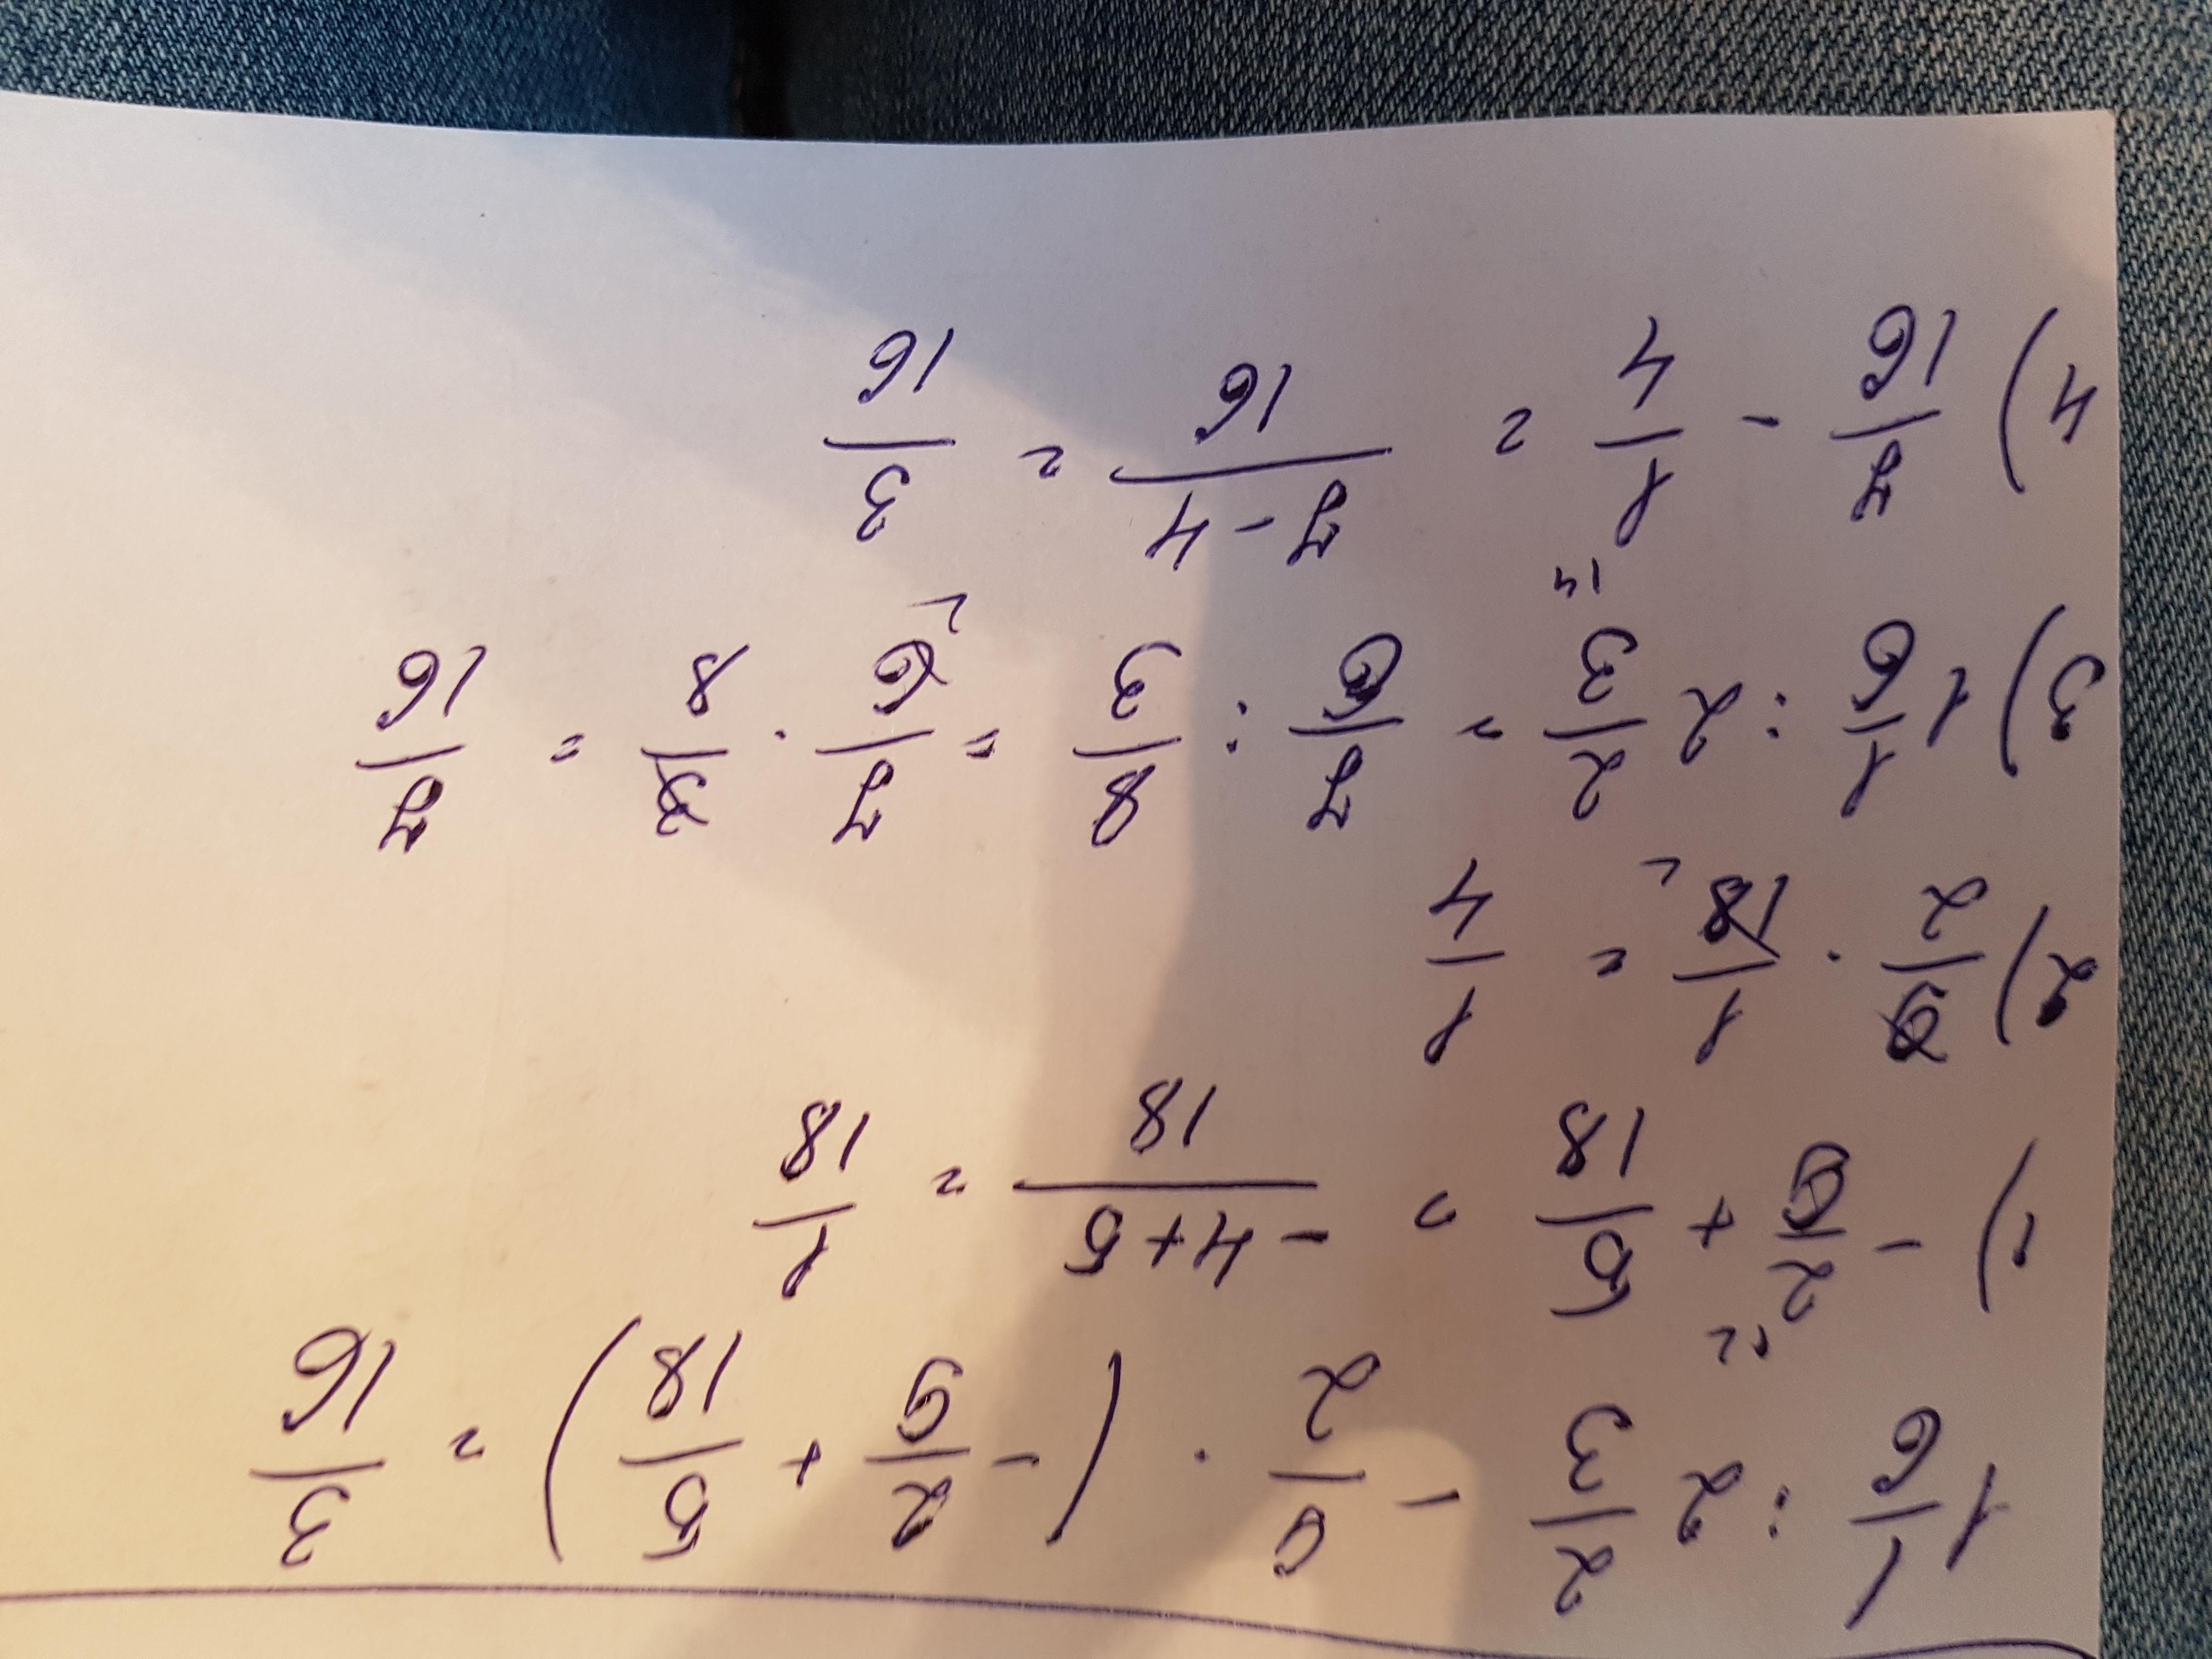 1 1/6 : 2 2/3 - 9/2 · (- 2/9 + 5/18) = 3/16
1) - 2/9 \2 + 5/18 = -4+5/18 = 1/18
2) 9/2 · 1/18 2 = 1/4
3) 1 1/6 : 2 2/3 = 7/6 : 8/3 = 7/6 2 · 3/8 = 7/16
4) 7/16 - 1/4 \4 = 7-4/16 = 3/16